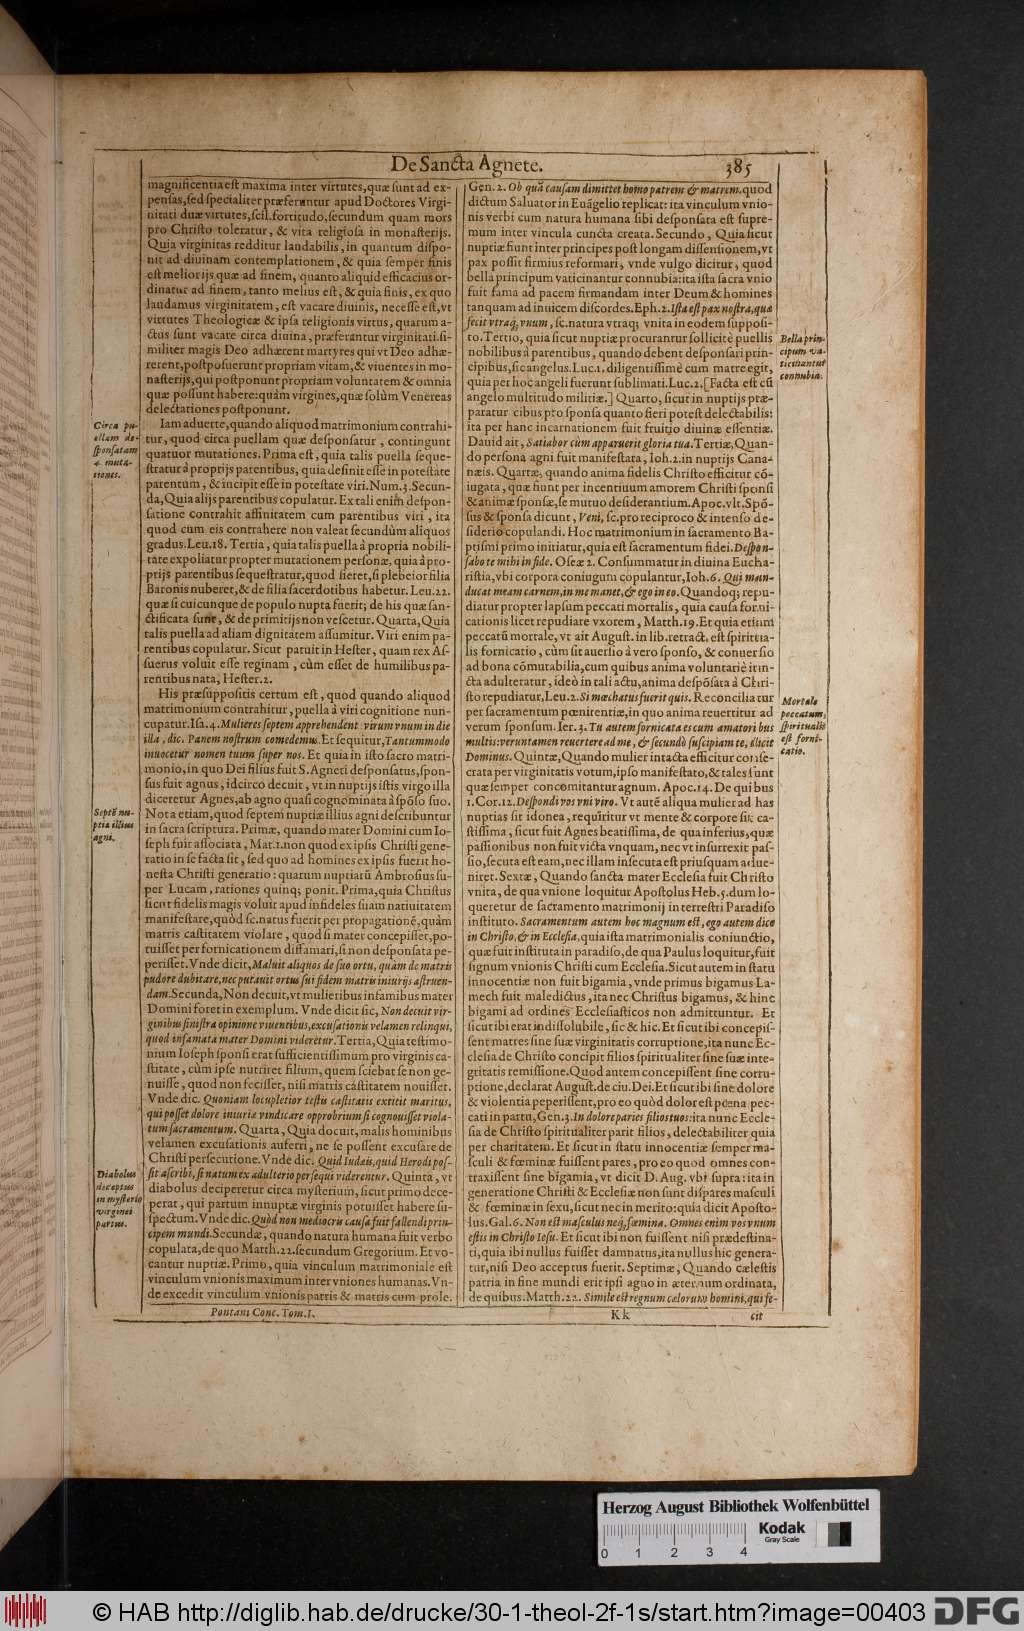 De Sancta Agnete.
385
magnificentia est maxima inter virtutes, quæ sunt ad ex-
pensas, sed specialiter præferuntur apud Doctores Virgi-
nitati duæ virtutes, scil. fortitudo, secundum quam mors
pro Christo toleratur, & vita religiosa in monasterijs.
Quia virginitas redditur laudabilis, in quantum dispo-
nit ad diuinam contemplationem, & quia semper finis
est melior ijs quæ ad finem, quanto aliquid efficacius or-
dinatur ad finem, tanto melius est, & quia finis, ex quo
laudamus virginitatem, est vacare diuinis, necesse est, vt
virtutes Theologicæ & ipsa religionis virtus, quarum a-
ctus sunt vacare circa diuina, præferantur virginitati. si-
militer magis Deo adhærent martyres qui vt Deo adhæ-
rerent, postposuerunt propriam vitam, & viuentes in mo-
nasterijs, qui postponunt propriam voluntatem & omnia
quæ possunt habere: quàm virgines, quæ solùm Venereas
delectationes postponunt.
Iam aduerte, quando aliquod matrimonium contrahi-
tur, quod circa puellam quæ desponsatur, contingunt
quatuor mutationes. Prima est, quia talis puella seque-
stratur à proprijs parentibus, quia definit esse in potestate
parentum, & incipit esse in potestate viri. Num. 3. Secun-
da, Quia alijs parentibus copulatur. Ex tali enim despon-
satione contrahit affinitatem cum parentibus viri, ita
quod cum eis contrahere non valeat secundùm aliquos
gradus. Leu. 18. Tertia, quia talis puella à propria nobili-
tate expoliatur propter mutationem personæ, quia à pro-
prijs parentibus sequestratur, quod fieret, si plebeior filia
Baronis nuberet, & de filia sacerdotibus habetur. Leu. 22.
quæ si cuicunque de populo nupta fuerit; de his quæ san-
ctificata sunt, & de primitijs non vescetur. Quarta, Quia
talis puella ad aliam dignitatem assumitur. Viri enim pa-
rentibus copulatur. Sicut patuit in Hester, quam rex As-
suerus voluit esse reginam, cùm esset de humilibus pa-
rentibus nata, Hester. 2.
His præsuppositis certum est, quod quando aliquod
matrimonium contrahitur, puella à viri cognitione nun-
cupatur. Isa. 4. Mulieres septem apprehendent virum vnum in die
illa, dic. Panem nostrum comedemus. Et sequitur, Tantummodo
inuocetur nomen tuum super nos. Et quia in isto sacro matri-
monio, in quo Dei filius fuit S. Agneti desponsatus, spon-
sus fuit agnus, idcirco decuit, vt in nuptijs istis virgo illa
diceretur Agnes, ab agno quasi cognominata à spōso suo.
Nota etiam, quod septem nuptiæ illius agni describuntur
in sacra scriptura. Primæ, quando mater Domini cum Io-
seph fuit associata, Mat. 1. non quod ex ipsis Christi gene-
ratio in se facta sit, sed quo ad homines ex ipsis fuerit ho-
nesta Christi generatio: quarum nuptiarū Ambrosius su-
per Lucam, rationes quinq; ponit. Prima, quia Christus
sicut fidelis magis voluit apud infideles suam natiuitatem
manifestare, quòd sc. natus fuerit per propagationē, quàm
matris castitatem violare, quod si mater concepisset, po-
tuisset per fornicationem diffamari, si non desponsata pe-
perisset. Vnde dicit, Maluit aliquos de suo ortu, quàm de matris
pudore dubitare, nec putauit ortus sui fidem matris iniurijs astruen-
dam. Secunda, Non decuit, vt mulieribus infamibus mater
Domini foret in exemplum. Vnde dicit sic, Non decuit vir-
ginibus sinistra opinione viuentibus, excusationis velamen relinqui,
quod infamata mater Domini videretur. Tertia, Quia testimo-
nium Ioseph sponsi erat sufficientissimum pro virginis ca-
stitate, cùm ipse nutriret filium, quem sciebat se non ge-
nuisse, quod non fecisset, nisi matris castitatem nouisset.
Vnde dic. Quoniam locupletior testis castitatis extitit maritus,
qui posset dolore iniuriæ vindicare opprobrium si cognouisset viola-
tum sacramentum. Quarta, Quia docuit, malis hominibus
velamen excusationis auferri, ne se possent excusare de
Christi persecutione. Vnde dic. Quid Iudæis, quid Herodi pos-
sit ascribi, si natum ex adulterio persequi viderentur. Quinta, vt
diabolus deciperetur circa mysterium, sicut primo dece-
perat, qui partum innuptæ virginis potuisset habere su-
spectum. Vnde dic. Quòd non mediocris causa fuit fallendi prin-
cipem mundi. Secundæ, quando natura humana fuit verbo
copulata, de quo Matth. 22. secundum Gregorium. Et vo-
cantur nuptiæ. Primo, quia vinculum matrimoniale est
vinculum vnionis maximum inter vniones humanas. Vn-
de excedit vinculum vnionis patris & matris cum prole.
Circa pu-
ellam de-
sponsatam
4. muta-
tiones.
Septē nu-
ptiæ illius
agni.
Diabolus
deceptus
in mysterio
virginei
partus.
Gen. 2. Ob quā causam dimittet homo patrem & matrem. quod
dictum Saluator in Euāgelio replicat: ita vinculum vnio-
nis verbi cum natura humana sibi desponsata est supre-
mum inter vincula cuncta creata. Secundo, Quia sicut
nuptiæ fiunt inter principes post longam dissensionem, vt
pax possit firmius reformari, vnde vulgo dicitur, quod
bella principum vaticinantur connubia: ita ista sacra vnio
fuit fama ad pacem firmandam inter Deum & homines
tanquam ad inuicem discordes. Eph. 2. Ista est pax nostra, quæ
fecit vtraq; vnum, sc. natura vtraq; vnita in eodem supposi-
to. Tertio, quia sicut nuptiæ procurantur sollicitè puellis
nobilibus à parentibus, quando debent desponsari prin-
cipibus, sic angelus. Luc. 1. diligentissimè cum matre egit,
quia per hoc angeli fuerunt sublimati. Luc. 2. [Facta est cū
angelo multitudo militiæ.] Quarto, sicut in nuptijs præ-
paratur cibus pro sponsa quanto fieri potest delectabilis:
ita per hanc incarnationem fuit fruitio diuinæ essentiæ.
Dauid ait, Satiabor cùm apparuerit gloria tua. Tertiæ, Quan-
do persona agni fuit manifestata, Ioh. 2. in nuptijs Cana-
næis. Quartæ, quando anima fidelis Christo efficitur cō-
iugata, quæ fiunt per incentiuum amorem Christi sponsi
& animæ sponsæ, se mutuo desiderantium. Apoc. vlt. Spō-
sus & sponsa dicunt, Veni, sc. pro reciproco & intenso de-
siderio copulandi. Hoc matrimonium in sacramento Ba-
ptismi primo initiatur, quia est sacramentum fidei. Despon-
sabo te mihi in fide. Oseæ 2. Consummatur in diuina Eucha-
ristia, vbi corpora coniugum copulantur, Ioh. 6. Qui man-
ducat meam carnem, in me manet, & ego in eo. Quandoq; repu-
diatur propter lapsum peccati mortalis, quia causa forni-
cationis licet repudiare vxorem, Matth. 19. Et quia etiam
peccatū mortale, vt ait August. in lib. retract. est spiritua-
lis fornicatio, cùm sit auersio à vero sponso, & conuersio
ad bona cōmutabilia, cum quibus anima voluntariè iun-
cta adulteratur, ideò in tali actu, anima despōsata à Chri-
sto repudiatur, Leu. 2. Si mœchatus fuerit quis. Reconciliatur
per sacramentum pœnitentiæ, in quo anima reuertitur ad
verum sponsum. Ier. 3. Tu autem fornicata es cum amatoribus
multis: veruntamen reuertere ad me, & secundò suscipiam te, dicit
Dominus. Quintæ, Quando mulier intacta efficitur conse-
crata per virginitatis votum, ipso manifestato, & tales sunt
quæ semper concomitantur agnum. Apoc. 14. De quibus
1. Cor. 12. Despondi vos vni viro. Vt autē aliqua mulier ad has
nuptias sit idonea, requiritur vt mente & corpore sit ca-
stissima, sicut fuit Agnes beatissima, de qua inferius, quæ
passionibus non fuit victa vnquam, nec vt insurrexit pas-
sio, secuta est eam, nec illam insecuta est priusquam adue-
niret. Sextæ, Quando sancta mater Ecclesia fuit Christo
vnita, de qua vnione loquitur Apostolus Heb. 5. dum lo-
queretur de sacramento matrimonij in terrestri Paradiso
instituto. Sacramentum autem hoc magnum est, ego autem dico
in Christo, & in Ecclesia, quia ista matrimonialis coniunctio,
quæ fuit instituta in paradiso, de qua Paulus loquitur, fuit
signum vnionis Christi cum Ecclesia. Sicut autem in statu
innocentiæ non fuit bigamia, vnde primus bigamus La-
mech fuit maledictus, ita nec Christus bigamus, & hinc
bigami ad ordines Ecclesiasticos non admittuntur. Et
sicut ibi erat indissolubile, sic & hic. Et sicut ibi concepis-
sent matres sine suæ virginitatis corruptione, ita nunc Ec-
clesia de Christo concipit filios spiritualiter sine suæ inte-
gritatis remissione. Quod autem concepissent sine corru-
ptione, declarat August. de ciu. Dei. Et sicut ibi sine dolore
& violentia peperissent, pro eo quòd dolor est pœna pec-
cati in partu, Gen. 3. In dolore paries filios tuos: ita nunc Eccle-
sia de Christo spiritualiter parit filios, delectabiliter quia
per charitatem. Et sicut in statu innocentiæ semper ma-
sculi & fœminæ fuissent pares, pro eo quod omnes con-
traxissent sine bigamia, vt dicit D. Aug. vbi supra: ita in
generatione Christi & Ecclesiæ non sunt dispares masculi
& fœminæ in sexu, sicut nec in merito: quia dicit Aposto-
lus. Gal. 6. Non est masculus neq; fœmina. Omnes enim vos vnum
estis in Christo Iesu. Et sicut ibi non fuissent nisi prædestina-
ti, quia ibi nullus fuisset damnatus, ita nullus hic genera-
tur, nisi Deo acceptus fuerit. Septimæ, Quando cælestis
patria in fine mundi erit ipsi agno in æternum ordinata,
de quibus. Matth. 22. Simile est regnum cælorum homini, qui fe-
Bella prin-
cipum va-
ticinantur
connubia.
Mortale
peccatum,
spiritualis
est forni-
catio.
Pontani Conc. Tom. I.
Kk
cit
Herzog August Bibliothek Wolfenbüttel
Kodak
Gray Scale
0 1 2 3 4
© HAB http://diglib.hab.de/drucke/30-1-theol-2f-1s/start.htm?image=00403
DFG